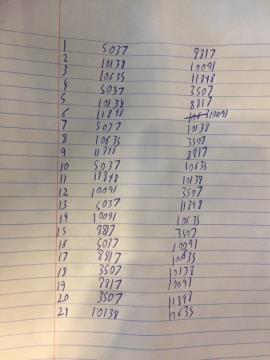 1 5037 8817
2 10138 10091
3 10635 11848
4 5037 3507
5 10138 8817
6 11848 10091
7 5037 10138
8 10635 3507
9 11848 8817
10 5037 10635
11 11848 10138
12 10091 3507
13 5037 11848
14 10091 10635
15 8817 3507
16 5037 10091
17 8817 10635
18 3507 10138
19 8817 10091
20 3507 11848
21 10138 10635